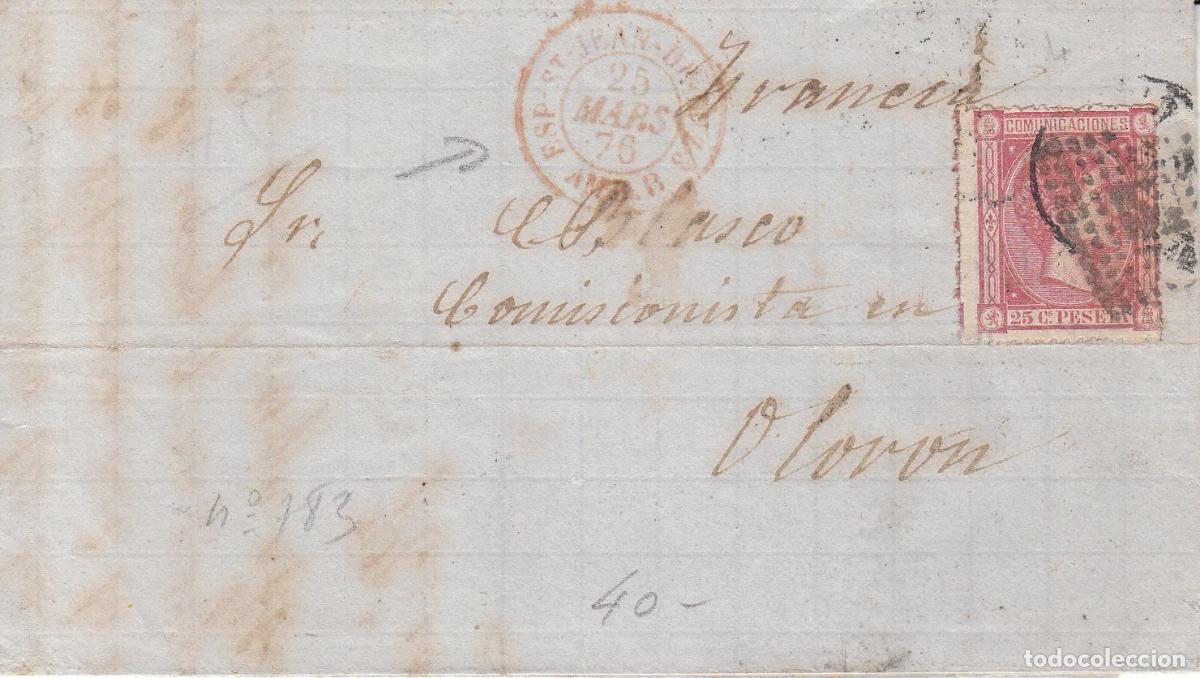 ESP. ST JEAN-D
25
MARS
76
AMB. B
Francia
COMUNICACIONES
25 C. PESETA
Sr. Blasco
Comisionista en
Oloron
nº 183
40-
todocoleccion